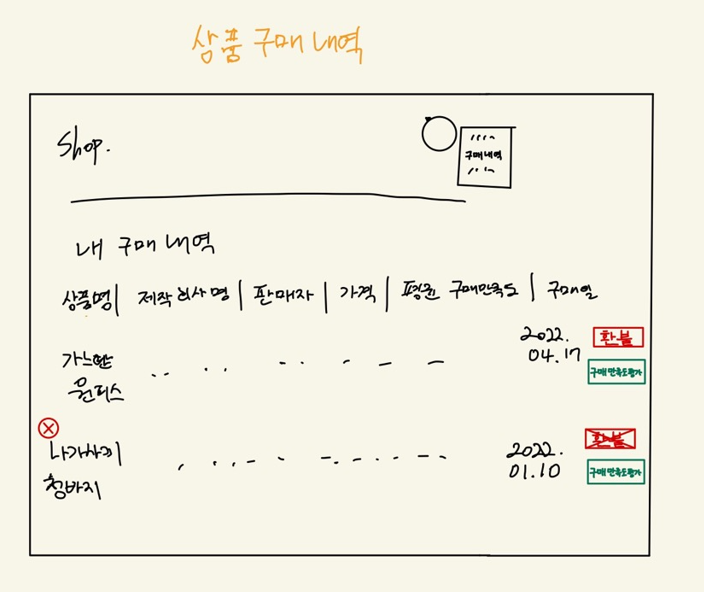 상품 구매 내역
Shop.
구매내역
내 구매 내역
상품명 | 제작 회사 명 | 판매자 | 가격 | 평균 구매만족도 | 구매일
가느란 원피스
2022. 04. 17
환불
구매 만족도평가
청바지
2022. 01. 10
환불
구매 만족도평가